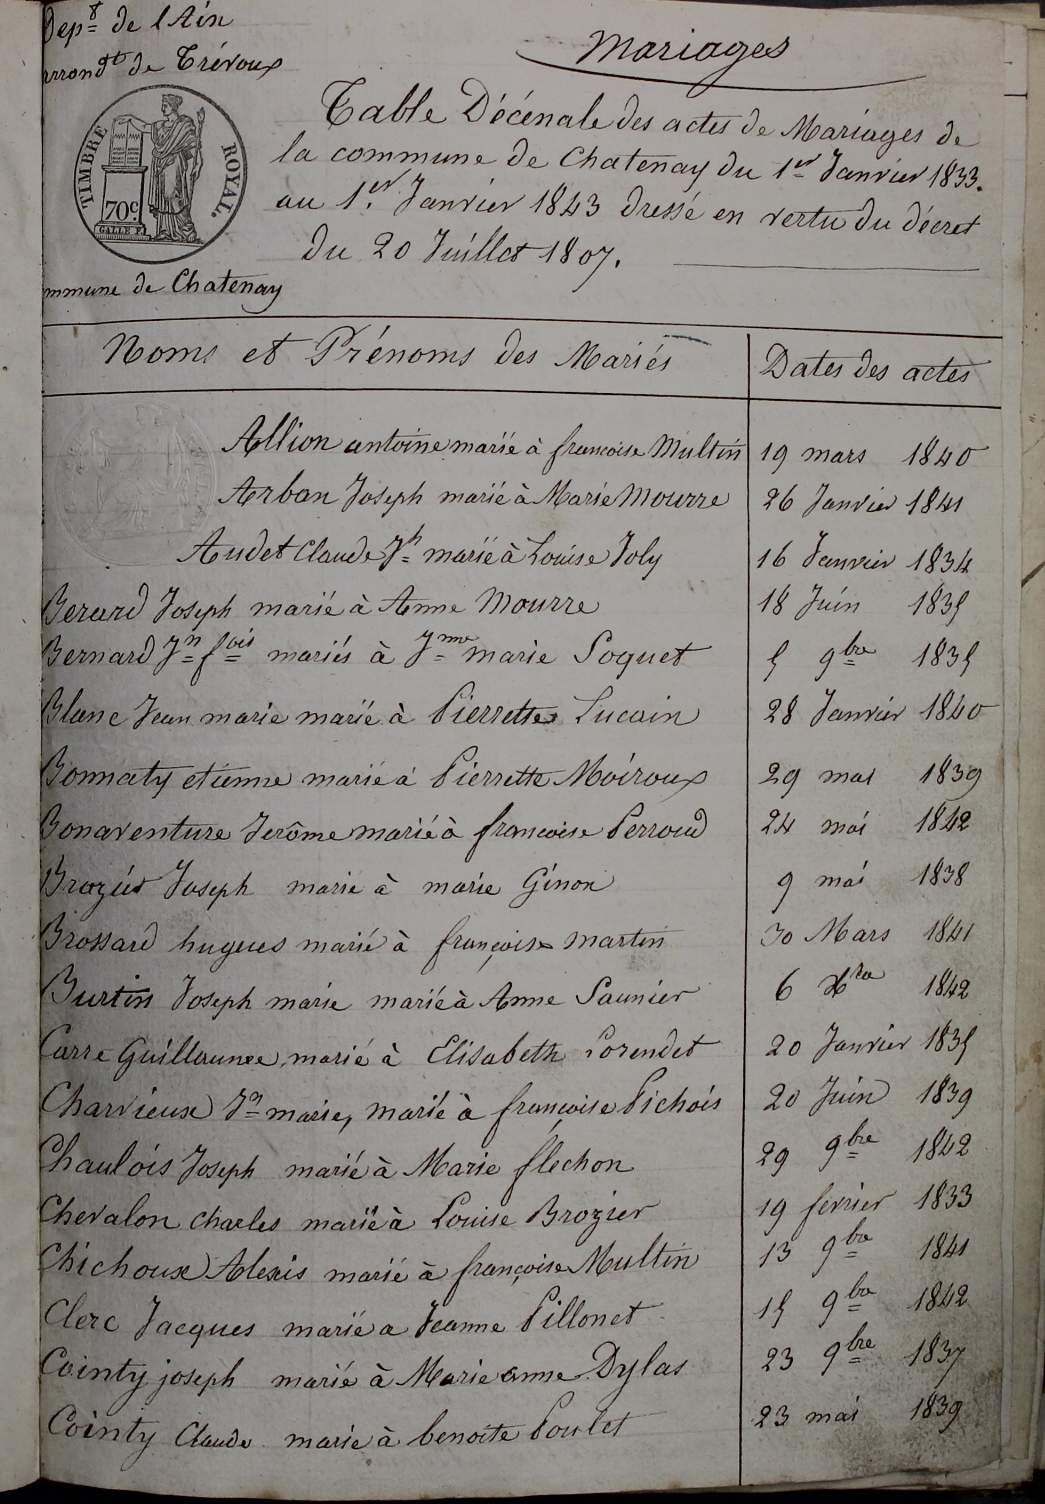 Dept de l'Ain
arrondt de Trévoux
Mariages
TIMBRE ROYAL.
70c
Table Décénale des actes de Mariages de
la commune de Chatenay du 1er Janvier 1833.
au 1er Janvier 1843 dressé en vertu du décret
du 20 Juillet 1807.
ommune de Chatenay
Noms et Prénoms des Mariés Dates des actes
Allion antoine marié à françoise Multin 19 mars 1840
Arban Joseph marié à Marie Mourre 26 Janvier 1841
Audet Claude Jh marié à Louise Joly 16 Janvier 1834
Berard Joseph marié à Anne Mourre 18 Juin 1835
Bernard Jn fois mariés à Jme marie Poquet 5 9bre 1835
Blanc Jean marie marié à Pierrette Lucain 28 Janvier 1840
Bonnaty etienne marié à Pierrette Moiroux 29 mai 1839
Bonaventure Jerôme marié à françoise Perroud 24 mai 1842
Joseph marié à marie Ginon 9 mai 1838
Brossard hugues marié à françoise martin 30 Mars 1841
Burtin Joseph marie marié à Anne Saunier 6 Xbre 1842
Carre Guillaume, marié à Elisabeth 20 Janvier 1835
Charvieux Jn marie, marié à françoise Pichois 20 Juin 1839
Chaulois Joseph marié à Marie flechon 29 9bre 1842
Chevalon Charles marié à Louise Brozier 19 février 1833
Chichoux Alexis marié à françoise Multin 13 9bre 1841
Clerc Jacques marié a Jeanne Pillonet 15 9bre 1842
Cointy joseph marié à Marie anne Dylas 23 9bre 1837
Cointy Claude marié à benoite Poulet 23 mai 1839